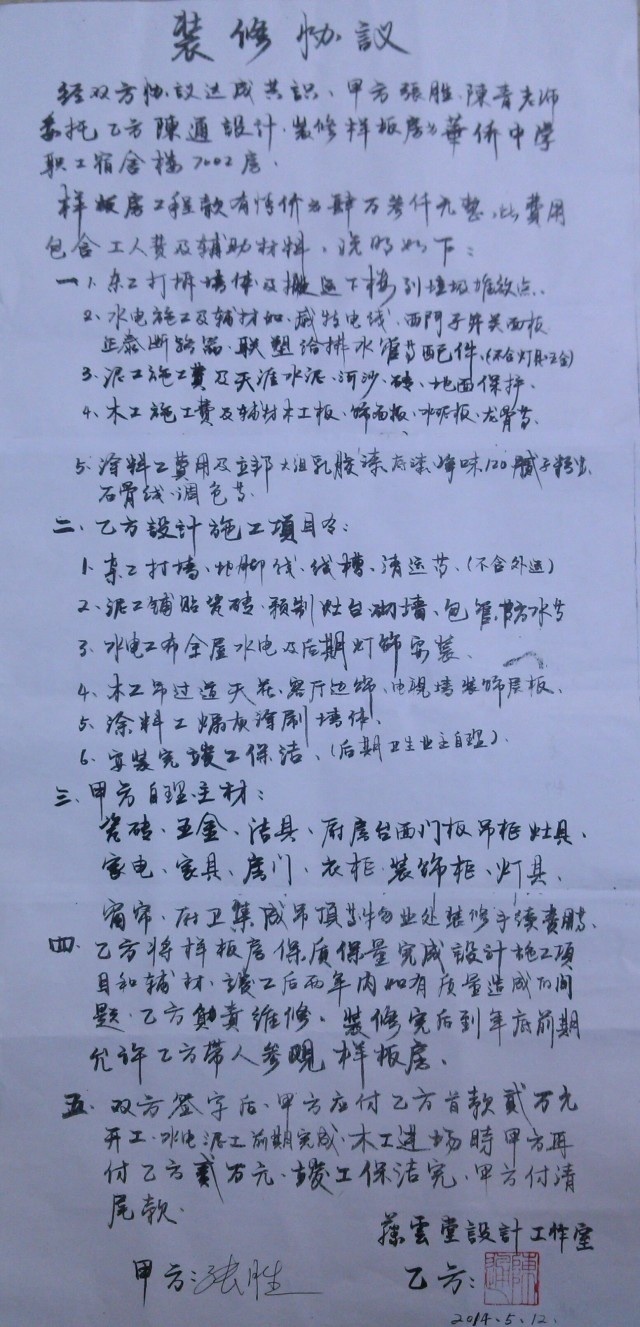 装修协议
经双方协议达成共识、甲方張胜、陳青老师
委托乙方陳通設计、装修样板房为華侨中学
职工宿舍楼7002房.
样板房工程款有情价为肆万叁仟元整,此費用
包含工人費及辅助材料、说明如下:
一1、杂工打拆墙体及搬运下楼到垃圾堆放点.
2、水电施工及辅材如、威特电线、西門子开关面板
正泰断路器、联塑给排水管等配件、(不含灯具五金)
3、泥工施工費及天涯水泥、河沙、砖、地面保护.
4、木工施工費及辅材木工板、饰面板、水泥板、龙骨等.
5、涂料工費用及立邦大姐乳胶漆底漆净味120腻子粉
石膏线、调色等.
二、乙方設計施工項目:
1、杂工打墙、地脚线、线槽、清运等、(不含外运)
2、泥工铺贴瓷砖、预制灶台砌墙、包管、防水等
3、水电工布全屋水电及后期灯饰安装.
4、木工吊过道天花、客厅边饰、电視墙装饰层板、
5、涂料工煽灰涂刷墙体、
6、安装完竣工保洁、(后期卫生业主自理).
三、甲方自理主材:
瓷砖、五金、洁具、厨房台面门板吊柜灶具、
家电、家具、房门、衣柜、装饰柜、灯具、
窗帘、厨卫集成吊顶等物业处装修手续费用等.
四、乙方将样板房保质保量完成設计施工项
目和辅材、竣工后两年内如有质量造成的问
题、乙方負責维修、装修完后到年底前期
允许乙方带人参观样板房、
五、双方签字后、甲方应付乙方首款貳万元
开工、水电泥工前期完成、木工进场時甲方再
付乙方貳万元、竣工保洁完、甲方付清
尾款、
雲堂設计工作室
甲方:张胜 乙方:陳通
2014.5.12.